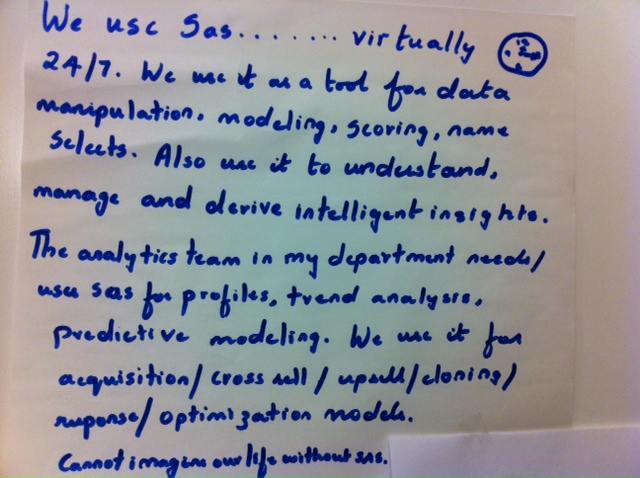 We use Sas........ virtually
24/7. We use it as a tool for data
manipulation, modeling, scoring, name
selects. Also use it to understand,
manage and derive intelligent insights.
The analytics team in my department needs/
uses sas for profiles, trend analysis,
predictive modeling. We use it for
acquisition/cross sell/upsell/cloning/
response/optimization models.
Cannot imagine our life without sas.